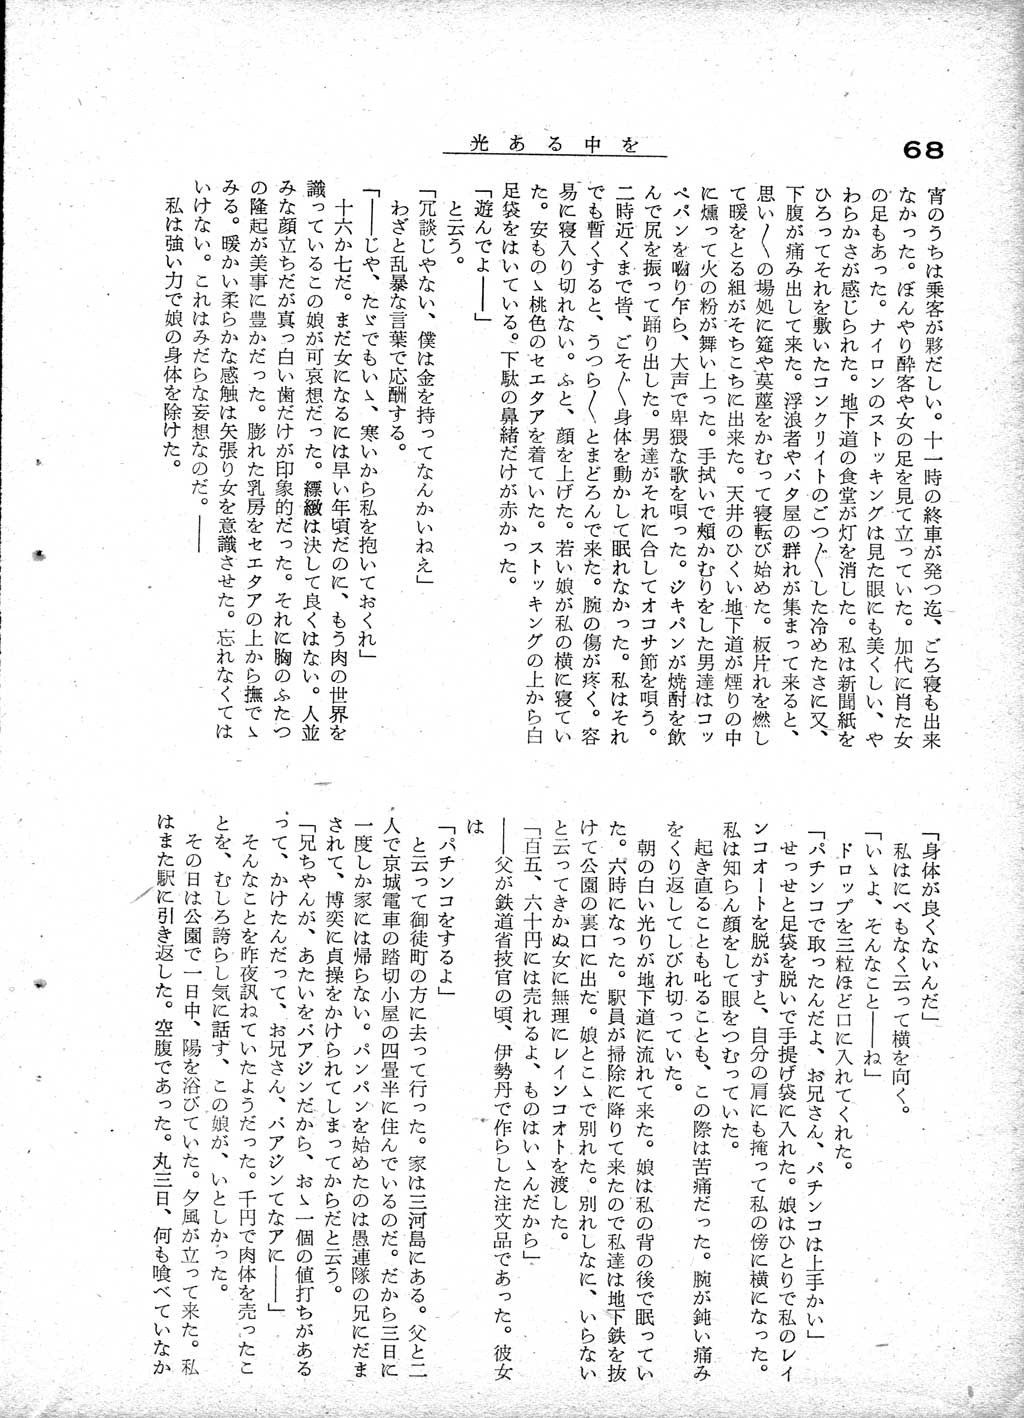 68
光ある中を
宵のうちは乗客が夥だしい。十一時の終車が発つ迄、ごろ寝も出来
なかった。ぼんやり酔客や女の足を見て立っていた。加代に肖た女
の足もあった。ナイロンのストッキングは見た眼にも美くしい、や
わらかさが感じられた。地下道の食堂が灯を消した。私は新聞紙を
ひろってそれを敷いたコンクリイトのごつ〴〵した冷めたさに又、
下腹が痛み出して来た。浮浪者やバタ屋の群れが集まって来ると、
思い〱の場処に筵や茣蓙をかむって寝転び始めた。板片れを燃し
て暖をとる組がそちこちに出来た。天井のひくい地下道が煙りの中
に燻って火の粉が舞い上った。手拭いで頬かむりをした男達はコッ
ペパンを嚙り乍ら、大声で卑猥な歌を唄った。ジキパンが焼酎を飲
んで尻を振って踊り出した。男達がそれに合してオコサ節を唄う。
二時近くまで皆、ごそ〴〵身体を動かして眠れなかった。私はそれ
でも暫くすると、うつら〱とまどろんで来た。腕の傷が疼く。容
易に寝入り切れない。ふと、顔を上げた。若い娘が私の横に寝てい
た。安ものゝ桃色のセエタアを着ていた。ストッキングの上から白
足袋をはいている。下駄の鼻緒だけが赤かった。
「遊んでよ――」
と云う。
「冗談じやない、僕は金を持ってなんかいねえ」
わざと乱暴な言葉で応酬する。
「――じや、たゞでもいゝ、寒いから私を抱いておくれ」
[省略]
いけない。これはみだらな妄想なのだ。――
私は強い力で娘の身体を除けた。
「身体が良くないんだ」
私はにべもなく云って横を向く。
「いゝよ、そんなこと――ね」
ドロップを三粒ほど口に入れてくれた。
「パチンコで取ったんだよ、お兄さん、パチンコは上手かい」
せっせと足袋を脱いで手提げ袋に入れた。娘はひとりで私のレイ
ンコオートを脱がすと、自分の肩にも掩って私の傍に横になった。
私は知らん顔をして眼をつむっていた。
起き直ることも叱ることも、この際は苦痛だった。腕が鈍い痛み
をくり返してしびれ切っていた。
朝の白い光りが地下道に流れて来た。娘は私の背の後で眠ってい
た。六時になった。駅員が掃除に降りて来たので私達は地下鉄を抜
けて公園の裏口に出た。娘とこゝで別れた。別れしなに、いらない
と云ってきかぬ女に無理にレインコオトを渡した。
「百五、六十円には売れるよ、ものはいゝんだから」
――父が鉄道省技官の頃、伊勢丹で作らした注文品であった。彼女
は
「パチンコをするよ」
と云って御徒町の方に去って行った。家は三河島にある。父と二
人で京城電車の踏切小屋の四畳半に住んでいるのだ。だから三日に
一度しか家には帰らない。パンパンを始めたのは愚連隊の兄にだま
されて、博奕に貞操をかけられてしまってからだと云う。
「兄ちやんが、あたいをバアジンだから、おゝ一個の値打ちがある
って、かけたんだって、お兄さん、バアジンてなアに――」
そんなことを昨夜訊ねていたようだった。千円で肉体を売ったこ
とを、むしろ誇らし気に話す、この娘が、いとしかった。
その日は公園で一日中、陽を浴びていた。夕風が立って来た。私
はまた駅に引き返した。空腹であった。丸三日、何も喰べていなか